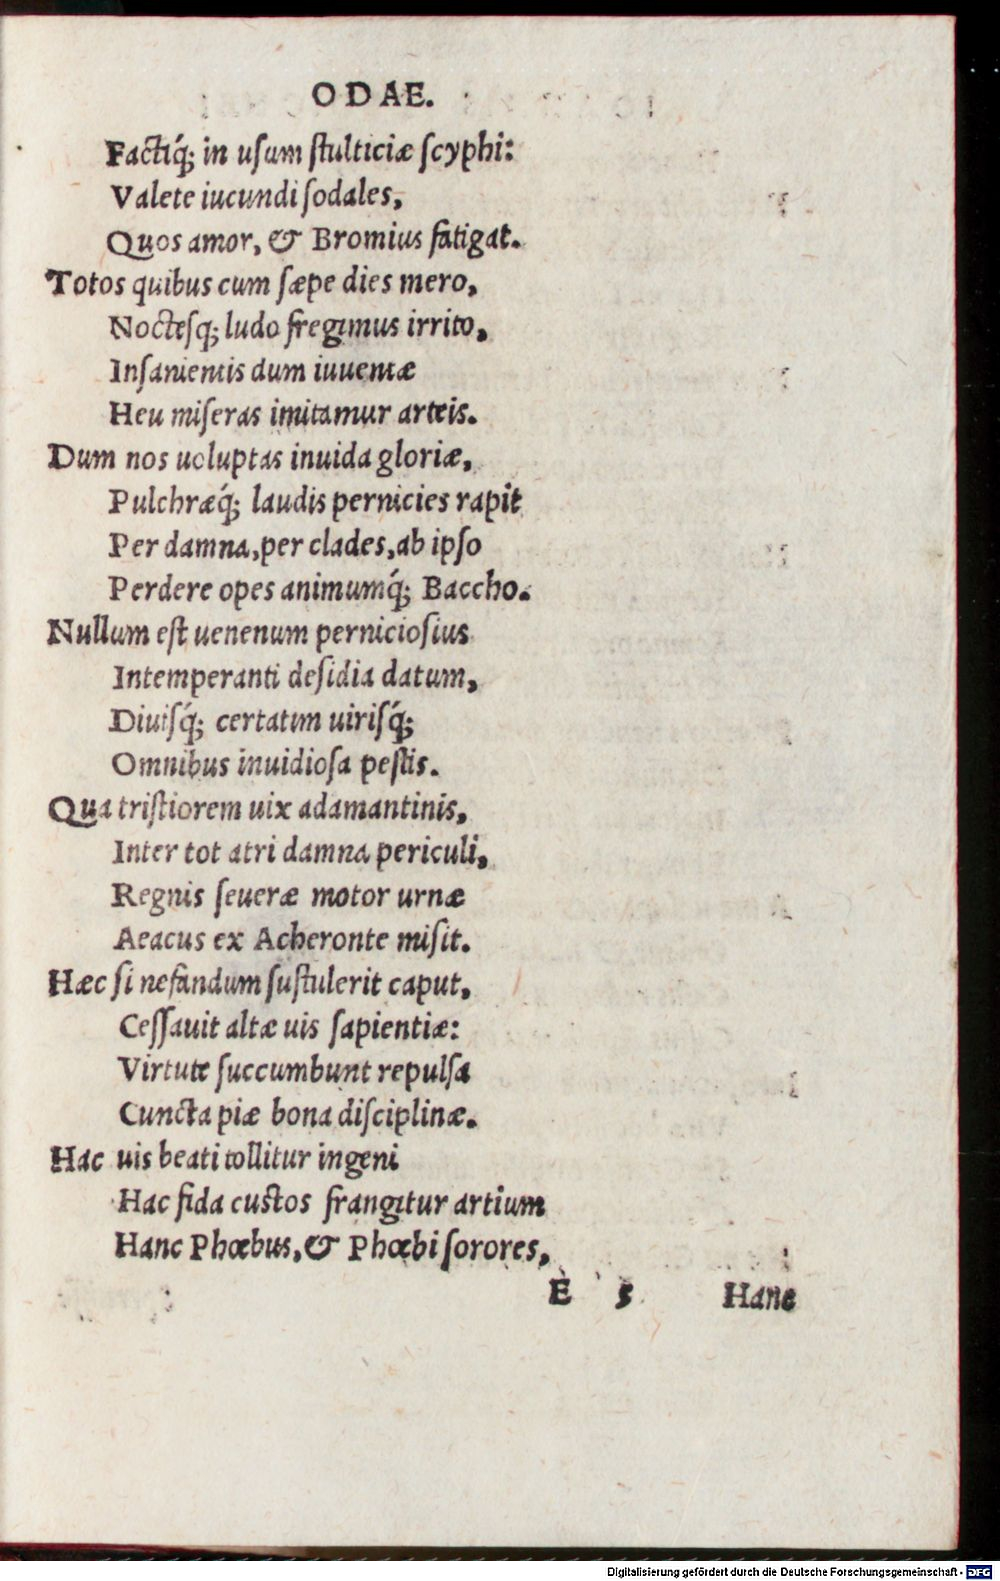 ODAE.
Factiq́; in uſum ſtulticiæ ſcyphi:
Valete iucundi ſodales,
Quos amor, & Bromius fatigat.
Totos quibus cum ſæpe dies mero,
Noctesq; ludo fregimus irrito,
Inſanientis dum iuuentæ
Heu miſeras imitamur arteis.
Dum nos uoluptas inuida gloriæ,
Pulchræq́; laudis pernicies rapit
Per damna, per clades, ab ipſo
Perdere opes animumq́; Baccho.
Nullum eſt uenenum pernicioſius
Intemperanti deſidia datum,
Diuiſq́; certatim uiriſq́;
Omnibus inuidioſa peſtis.
Qua triſtiorem uix adamantinis,
Inter tot atri damna periculi,
Regnis ſeueræ motor urnæ
Aeacus ex Acheronte miſit.
Hæc ſi nefandum ſuſtulerit caput,
Ceſſauit altæ uis ſapientiæ:
Virtute ſuccumbunt repulſa
Cuncta piæ bona diſciplinæ.
Hac uis beati tollitur ingeni
Hac fida cuſtos frangitur artium
Hanc Phœbus, & Phœbi ſorores,
E 5 Hanc
Digitalisierung gefördert durch die Deutsche Forschungsgemeinschaft - DFG